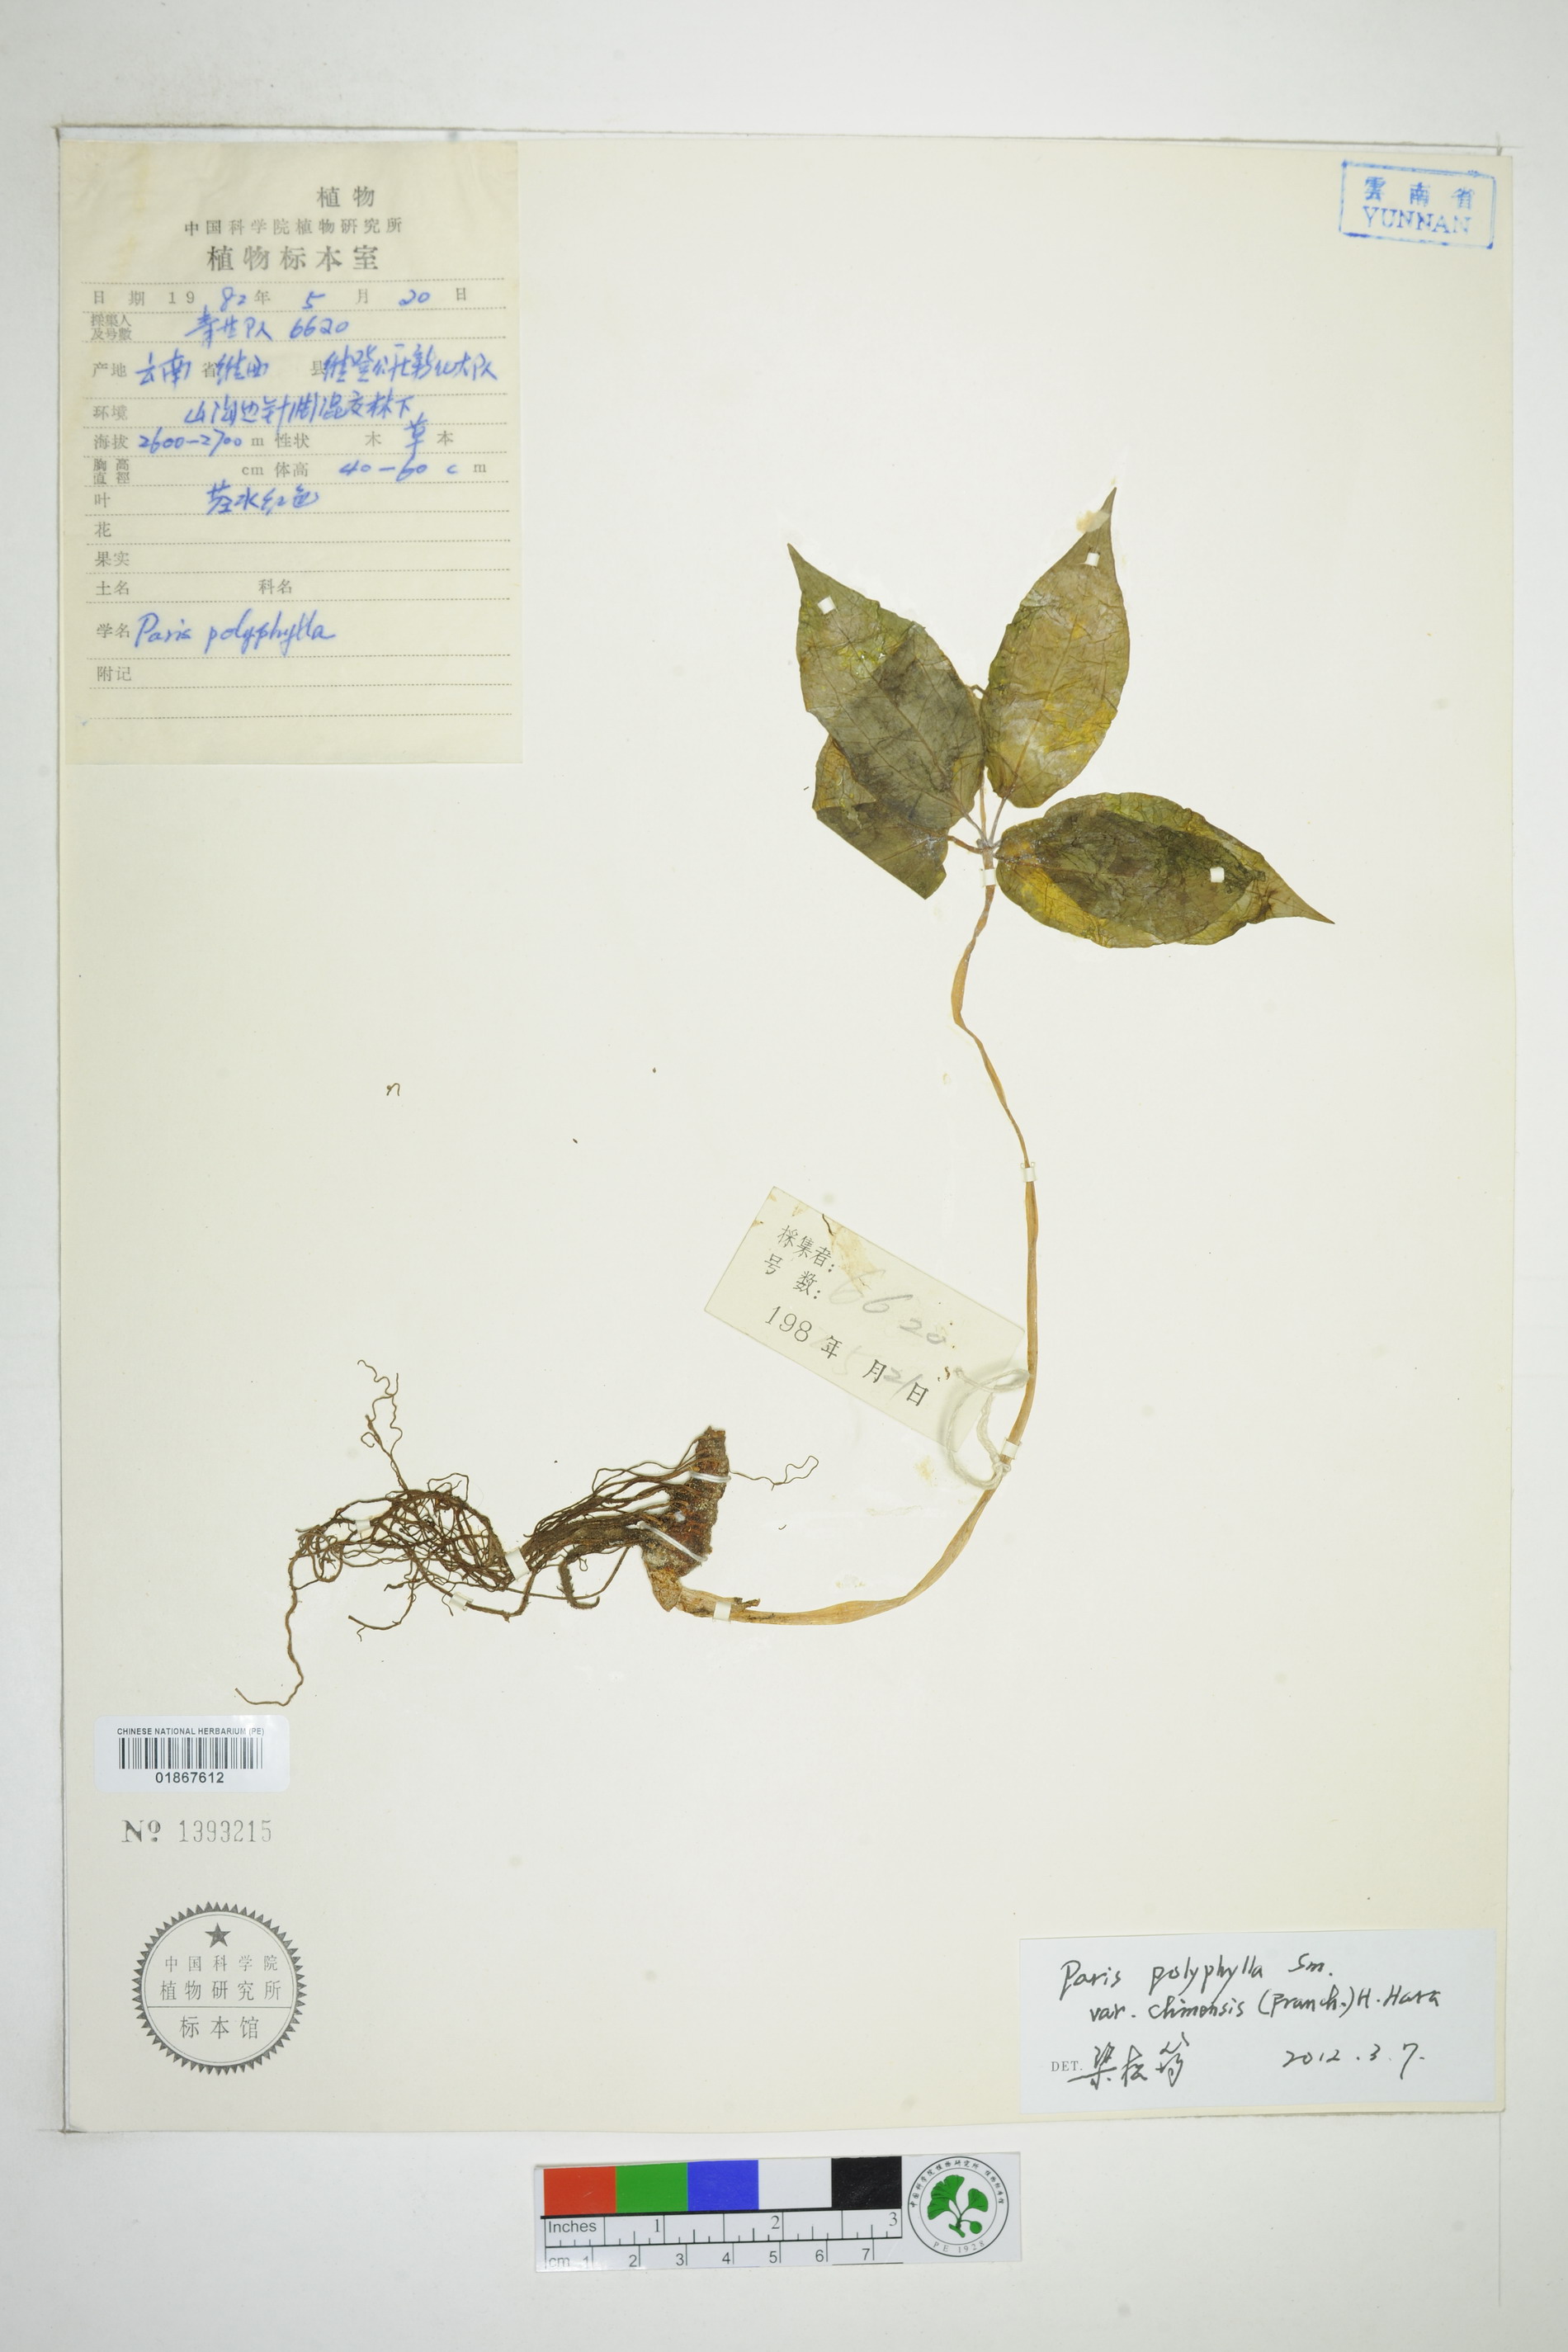 植物
中国科学院植物研究所
植物标本室
日期 1982年 5月 20日
採集人及号数 青甘队 6620
产地 云南省 维西 县 维登公社新化大队
环境 山沟边针阔混交林下
海拔 2600-2700 m 性状 木 草 本
胸高直徑 cm 体高 40-60 c m
叶 茎水红色
花
果实
土名 科名
学名 Paris polyphylla
附记
雲南省
YUNNAN
採集者:
号数: 6620
198 年 5 月 21 日
CHINESE NATIONAL HERBARIUM (PE)
01867612
No 1393215
中国科学院
植物研究所
标本馆
Paris polyphylla Sm.
var. chinensis (Franch.) H. Hara
DET. 2012.3.7.
Inches 1 2 3
cm 1 2 3 4 5 6 7
PE 1928